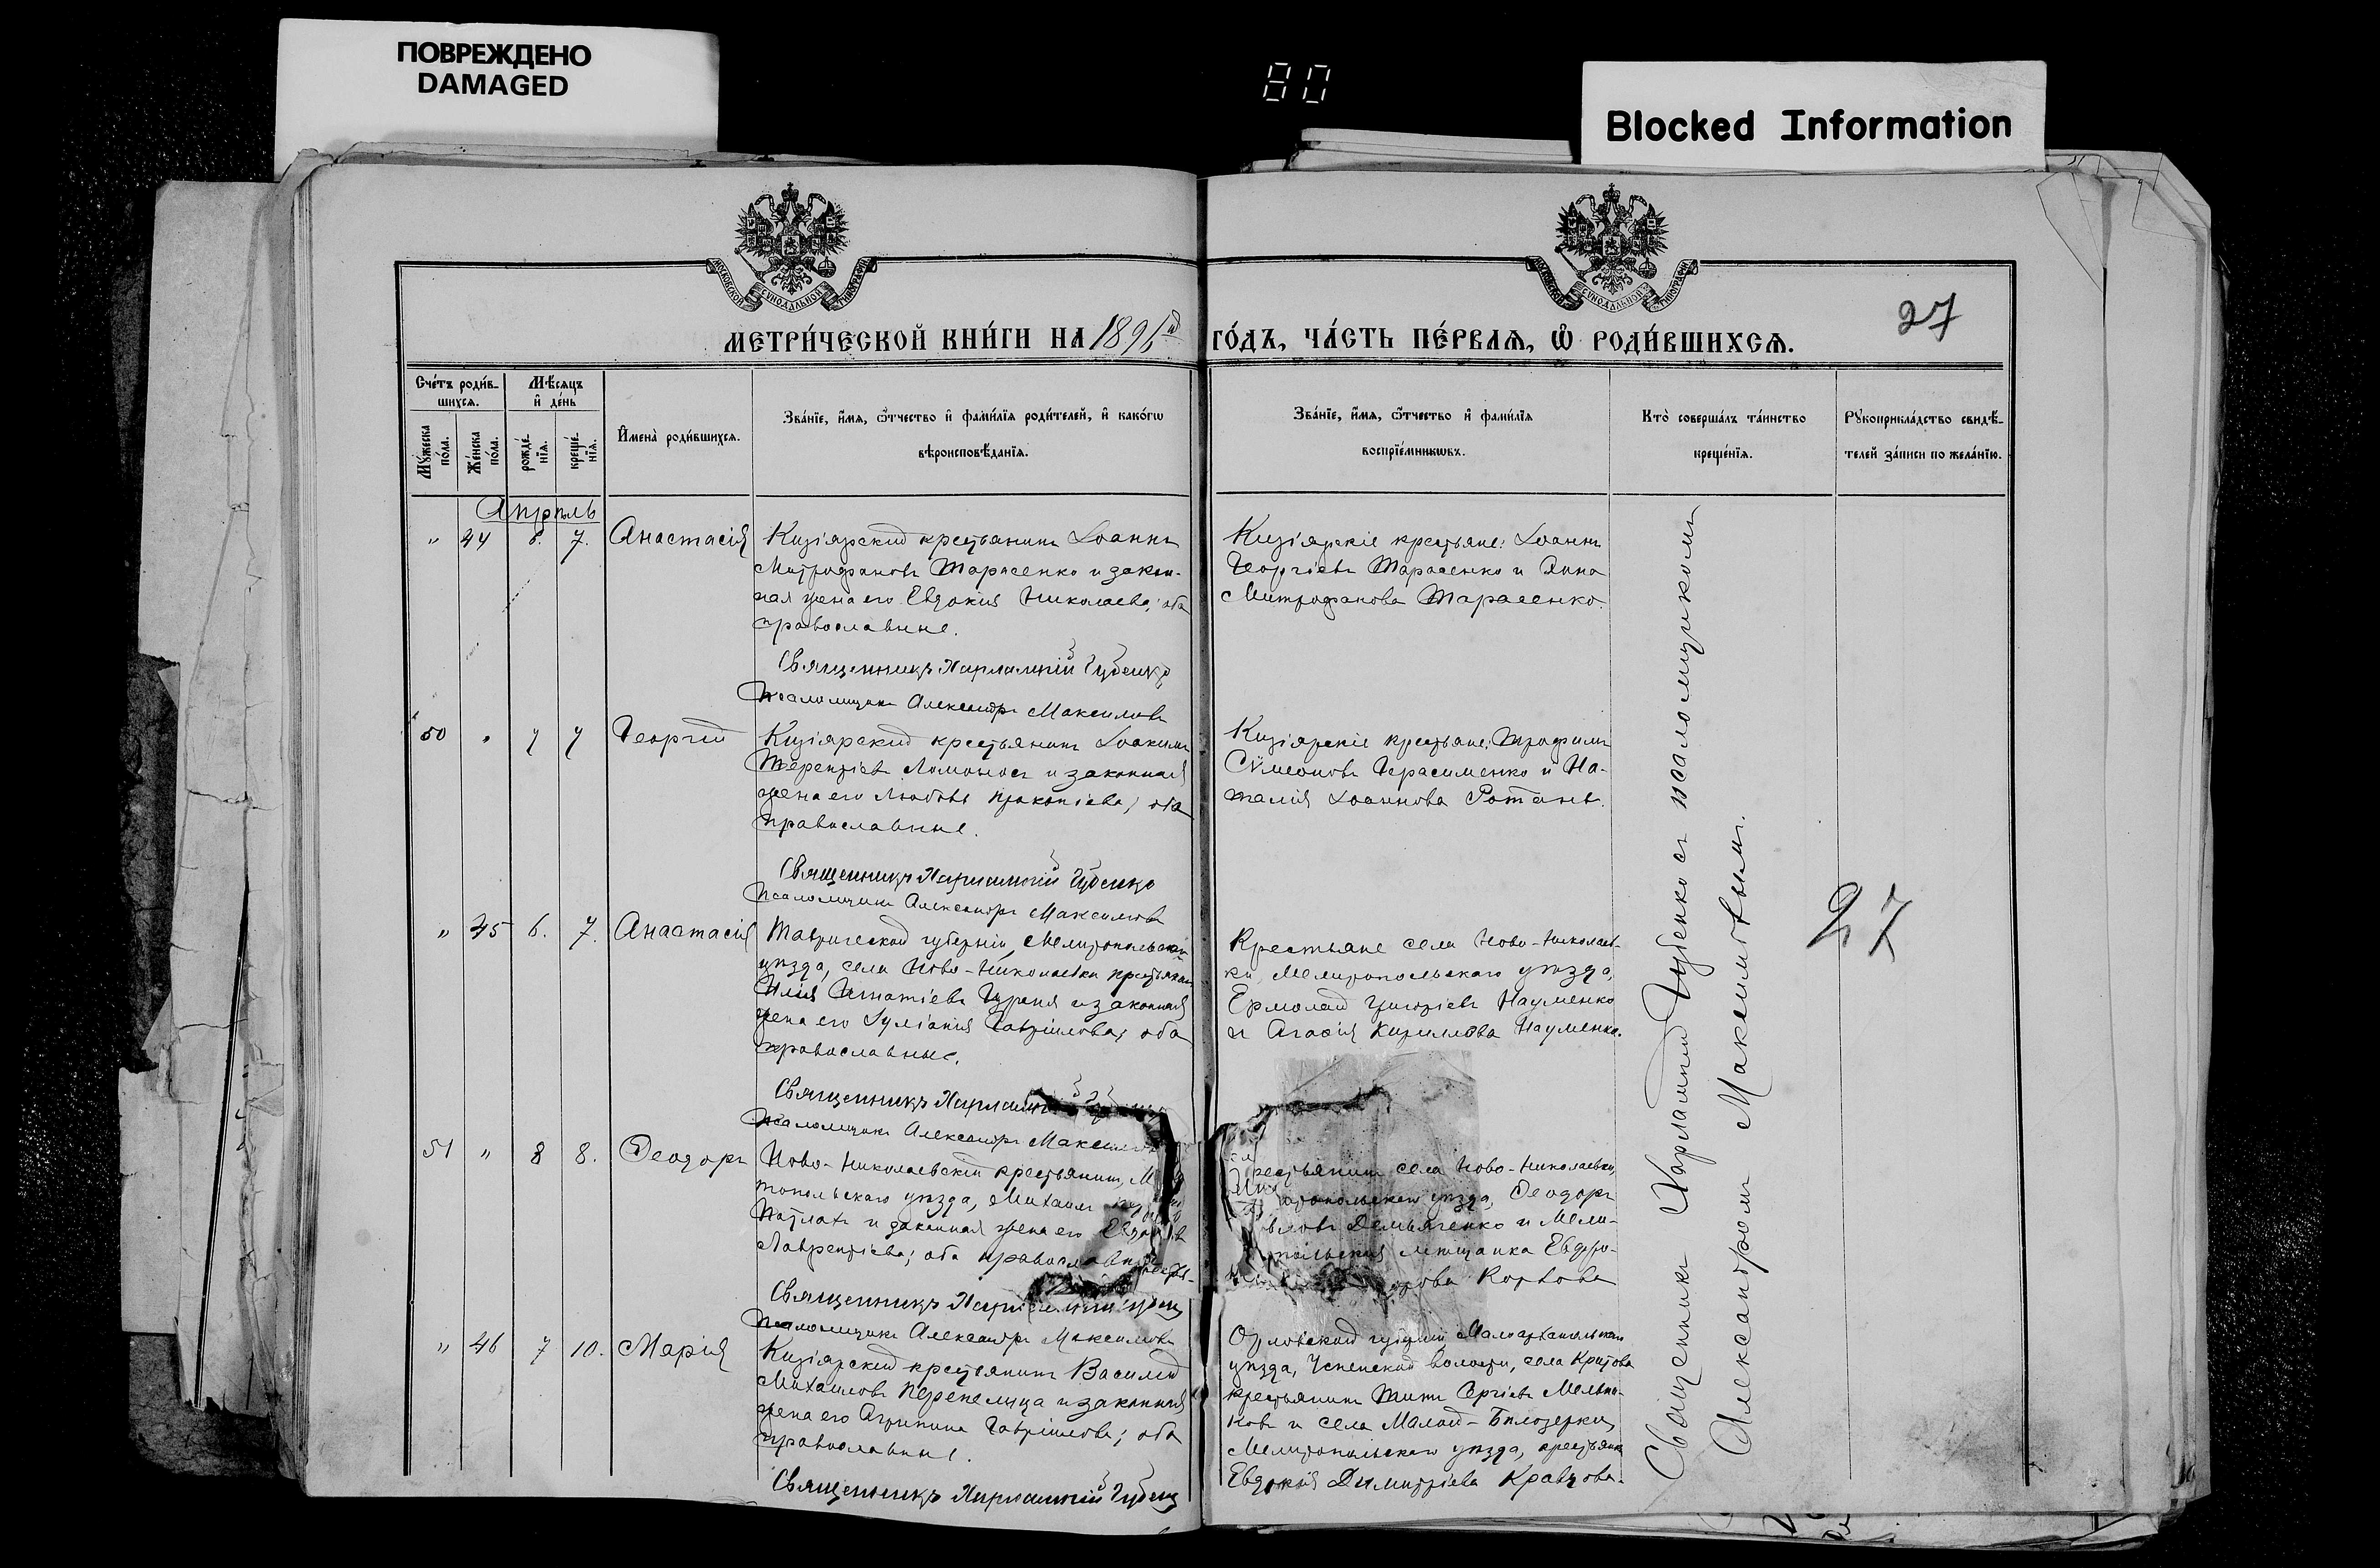 ПОВРЕЖДЕНО
DAMAGED
80
Blocked Information
27
МЕТРИ́ЧЕСКОЙ КНИ́ГИ НА 189 ГО́ДЪ, ЧА́СТЬ ПЕ́РВАѦ, Ѡ҆ РОДИ́ВШИХСѦ.
Счéтъ роди́в-
шихсѧ.
Мꙋ́жеска по́ла.
Же́нска по́ла.
Мѣ́сяцъ и҆ де́нь
рожде́-нїѧ.
креще́-нїѧ.
И҆мена̀ роди́вшихсѧ.
Зва́нїе, и҆́мѧ, ѻ҆́тчество и҆ фами́лїѧ роди́телей, и҆ како́гѡ
вѣроисповѣ́данїѧ.
Зва́нїе, и҆́мѧ, ѻ҆́тчество и҆ фами́лїѧ
воспрїе́мникѡвъ.
Кто̀ соверша́лъ та́инство
креще́нїѧ.
Рꙋкоприкла́дство свидѣ́-
телей за́писи по жела́нїю.
Апрѣль
" 44 6. 7. Анастасія
Кизіярскій крестьянинъ Іоаннъ
Митрофановъ Тарасенко и закон-
ная жена его Евдокія Николаева; оба
православные.
Священникъ Харлампій Губенко
Псаломщикъ Александръ Максимовъ
Кизіярскіе крестьяне: Іоаннъ
Георгіевъ Тарасенко и Анна
Митрофанова Тарасенко.
50 " 7 7 Георгій
Кизіярскій крестьянинъ Іоакимъ
Терентіевъ Ломоносъ и законная
жена его Любовь Прокопіева; оба
православные.
Священникъ Харлампій Губенко
Псаломщикъ Александръ Максимовъ
Кизіярскіе крестьяне: Трофимъ
Сѵмеоновъ Герасименко и На-
талія Іоаннова Ротань.
" 45 6. 7. Анастасія
Таврической губерніи, Мелитопольскаго
уѣзда, села Ново-Николаевки крестьянинъ
Илія Игнатіевъ и законная
жена его Іуліанія Гавріилова; оба
православные.
Священникъ
Псаломщикъ Александръ
Крестьяне села Ново-Николаев-
ки, Мелитопольскаго уѣзда,
Ермолай Григоріевъ Науменко
и Агаѳія Кириллова Науменко.
51 " 8 8. Ѳеодоръ
Ново-Николаевскій крестьянинъ,
топольскаго уѣзда, Михаилъ
и законная жена его
Лаврентіева; оба
Священникъ
Псаломщикъ Александръ Максимовъ
села Ново-Николаевки,
уѣзда, Ѳеодоръ
Демьяненко и Мели-
мѣщанка Евфро-
" 46 7 10. Марія
Кизіярскій крестьянинъ Василій
Михаиловъ Перепелица и законная
жена его Агрипина Гавріилова; оба
православные.
Священникъ Харлампій Губенко
Орловской губерніи, Малоархангельскаго
уѣзда, Успенской волости, села
крестьянинъ Титъ Сергіевъ Мельни-
ковъ и села Малой-Бѣлозерки,
Мелитопольскаго уѣзда, крестьянка
Евдокія Димитріева Кравцова.
Священникъ Харлампій Губенко съ псаломщикомъ
Александромъ Максимовымъ.
27